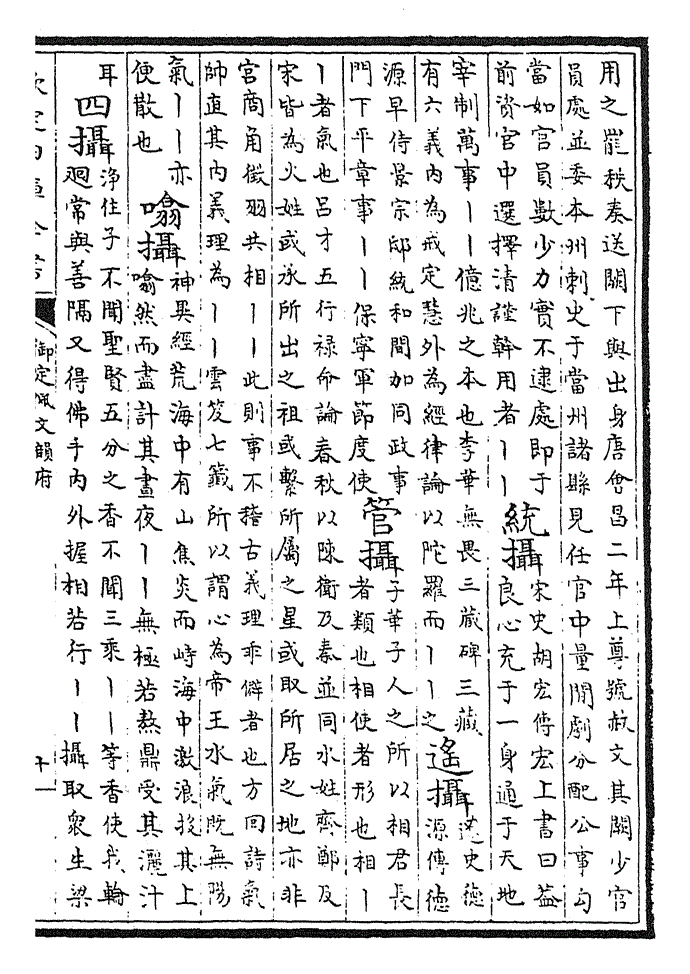 用之罷秩奏送闕下與出身唐會昌二年上尊號赦文其闕少官
員處並委本州刺史于當州諸縣見任官中量閒劇分配公事勾
當如官員數少力實不逮處即于
前資官中選擇清謹幹用者丨丨
統攝
宋史胡宏傳宏上書曰蓋
良心充于一身通于天地
宰制萬事丨丨億兆之本也李華無畏三藏碑三藏
有六義内為戒定慧外為經律論以陀羅而丨丨之
遙攝
遼史德
源傳德
源早侍景宗邸統和間加同政事
門下平章事丨丨保寧軍節度使
管攝
子華子人之所以相君長
者類也相使者形也相丨
丨者氣也呂才五行祿命論春秋以陳衛及秦並同水姓齊鄭及
宋皆為火姓或承所出之祖或繫所屬之星或取所居之地亦非
宮商角徵羽共相丨丨此則事不稽古義理乖僻者也方回詩氣
帥直其内義理為丨丨雲笈七籤所以謂心為帝王水氣既無陽
氣丨丨亦
便散也
噏攝
神異經荒海中有山焦炎而峙海中激浪投其上
噏然而盡計其晝夜丨丨無極若熬鼎受其灑汁
耳
四攝
淨住子不聞聖賢五分之香不聞三乘丨丨等香使我輪
迴常與善隔又得佛手内外握相若行丨丨攝取衆生梁
欽定四庫全書
御定佩文韻府
十一